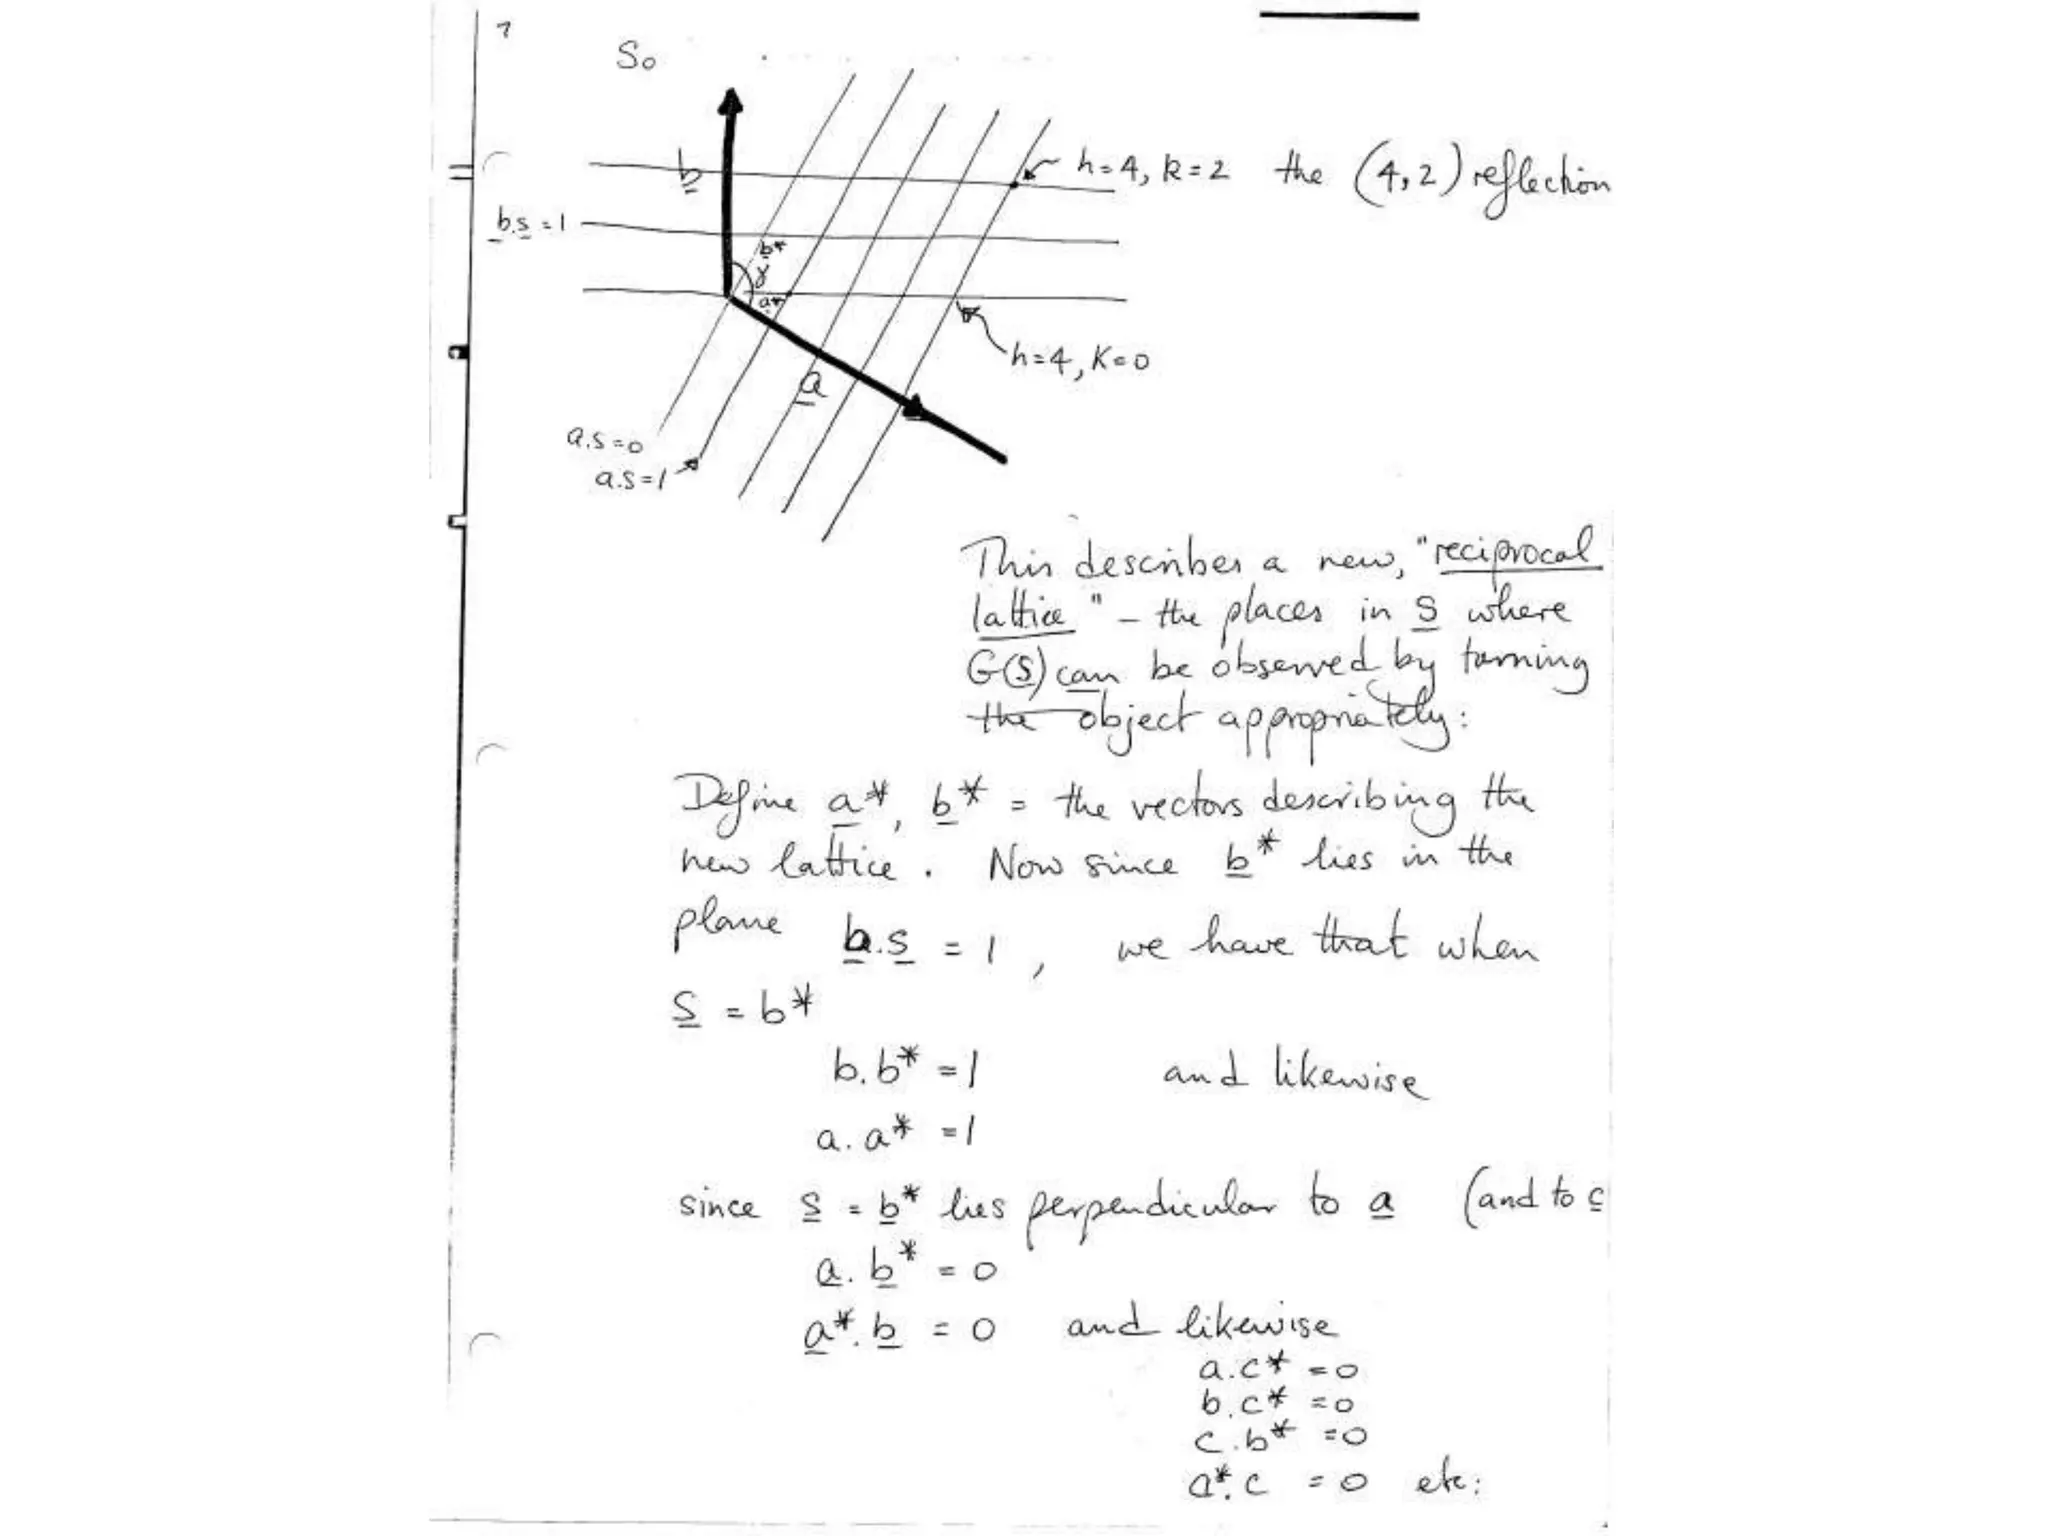 7
So
b
h=4, k=2 the (4,2) reflection
b.s=1
b*
γ
a*
h=4, K=0
a
a.s=0
a.s=1
This describes a new, "reciprocal
lattice" – the places in s where
G(s) can be observed by turning
the object appropriately:
Define a*, b* = the vectors describing the
new lattice. Now since b* lies in the
plane b.s = 1, we have that when
s = b*
b.b* =1 and likewise
a.a* =1
since s = b* lies perpendicular to a (and to c
a.b* =0
a*.b = 0 and likewise
a.c* =0
b.c* =0
c.b* =0
a*.c =0 etc: